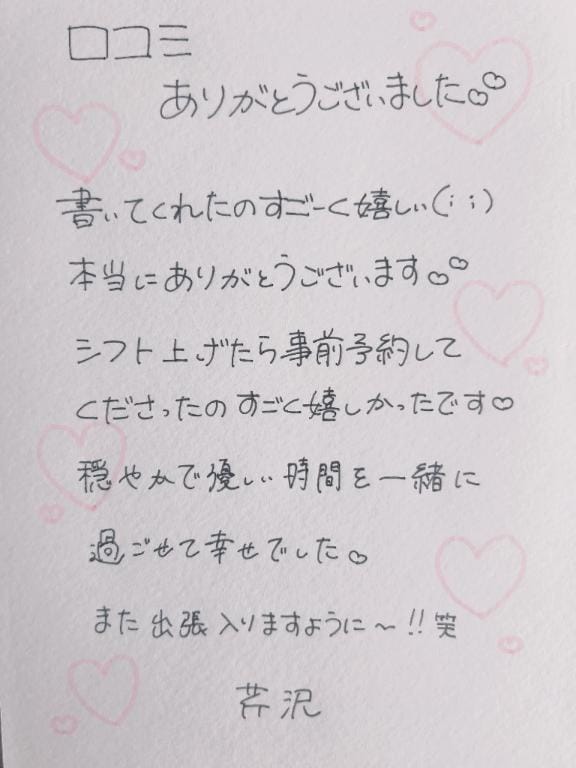 口コミ
ありがとうございました♡♡
書いてくれたのすご〜く嬉しい(；；)
本当にありがとうございます♡♡
シフト上げたら事前予約して
くださったのすごく嬉しかったです♡
穏やかで優しい時間を一緒に
過ごせて幸せでした♡
また出張入りますように〜!!笑
芹沢